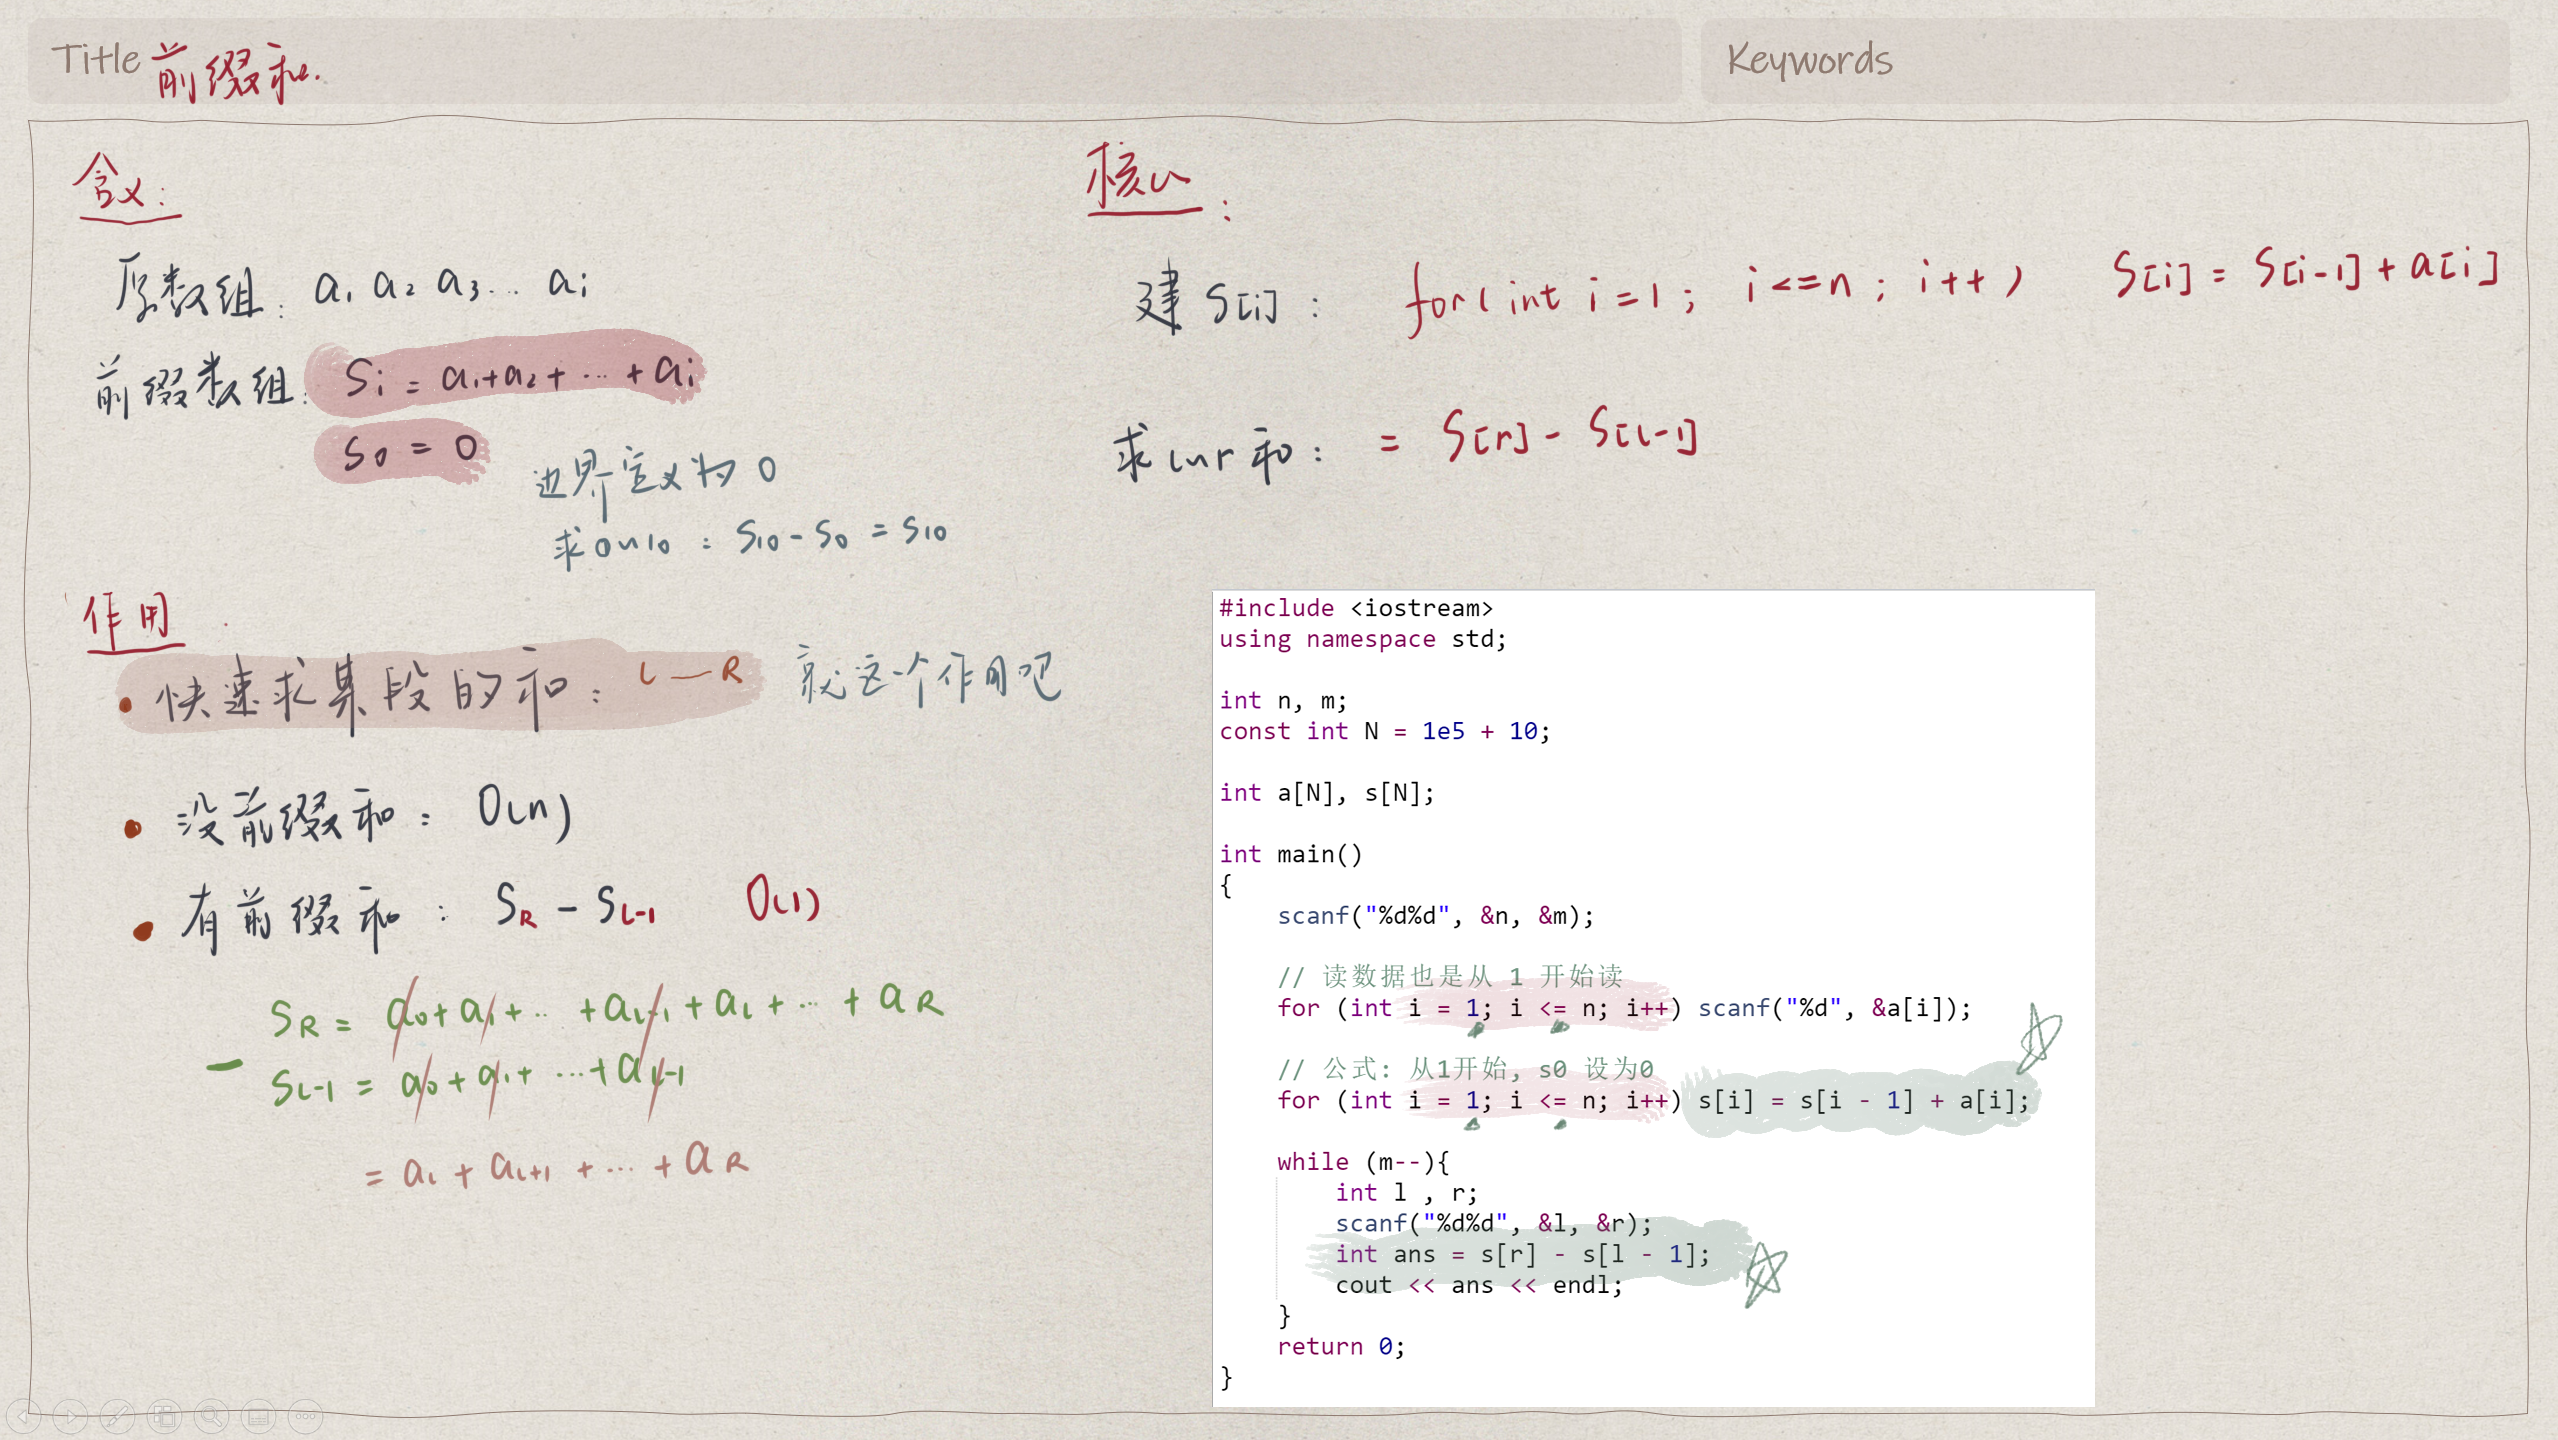 Title 前缀和.
Keywords
含义:
原数组: a1 a2 a3... ai
前缀数组: Si = a1+a2+ ... +ai
S0 = 0
边界定义为 0
求0~10 : S10 - S0 = S10
作用
快速求某段的和: L—R 就这个作用吧
没前缀和: O(n)
有前缀和: SR - SL-1 O(1)
SR = a0+a1+ ... +aL-1+aL+ ... +aR
- SL-1 = a0+a1+ ...+aL-1
= aL + aL+1 + ... + aR
核心:
建 S[i] : for(int i=1; i<=n; i++) S[i] = S[i-1]+a[i]
求l~r和: = S[r] - S[l-1]
#include <iostream>
using namespace std;
int n, m;
const int N = 1e5 + 10;
int a[N], s[N];
int main()
{
scanf("%d%d", &n, &m);
// 读数据也是从 1 开始读
for (int i = 1; i <= n; i++) scanf("%d", &a[i]);
// 公式: 从1开始, s0 设为0
for (int i = 1; i <= n; i++) s[i] = s[i - 1] + a[i];
while (m--){
int l , r;
scanf("%d%d", &l, &r);
int ans = s[r] - s[l - 1];
cout << ans << endl;
}
return 0;
}